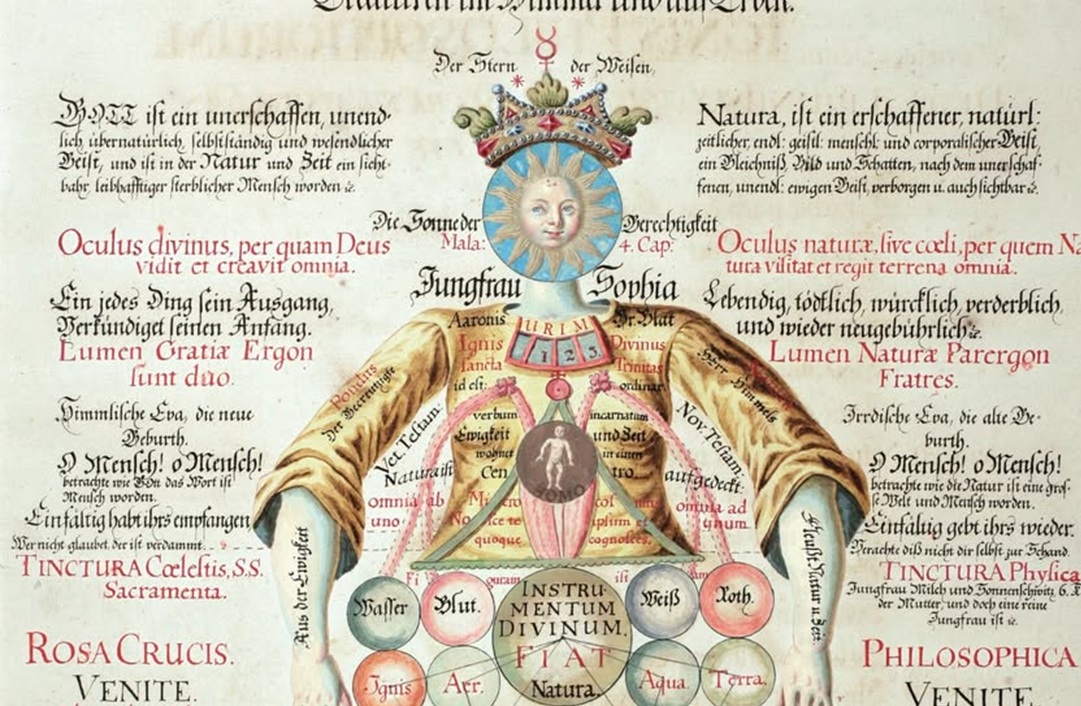 Creaturen im Himmel und auf Erden.
Der Stern der Weisen
GOTT ist ein unerschaffen, unend-
lich übernatürlich, selbstständig und wesendlicher
Geist, und ist in der Natur und Zeit ein sicht-
bahr leibhafftiger sterblicher Mensch worden
Natura, ist ein erschaffener, natürl:
zeitlicher, endl: geistl: menschl: und corporalischer Geist,
ein Gleichniß, Bild und Schatten, nach dem unerschaf-
fenen, unendl: ewigen Geist, verborgen u. auch sichtbar
Die Sonne der Gerechtigkeit
Mala: 4. Cap:
Oculus divinus, per quam Deus
vidit et creavit omnia.
Oculus naturæ, sive cœli, per quem Na
tura visitat et regit terrena omnia.
Jungfrau Sophia
Ein jedes Ding sein Ausgang,
Verkündiget seinen Anfang.
Lumen Gratiæ Ergon
sunt duo.
Lebendig, tödtlich, würcklich, verderblich,
und wieder neugebührlich
Lumen Naturæ Parergon
Fratres.
Aaronis URIM
1 2 3
Ignis Divinus
sancta Trinitas
id est: ordinar.
verbum incarnatum
Ewigkeit und Zeit
wohnet in einen
Cen tro.
HOMO
Vet. Testam. Nov. Testam:
Natura ist aufgedeckt.
omnia ab omnia ad
uno unum
quoque cognosces.
Himmlische Eva, die neue
Geburth.
O Mensch! o Mensch!
betrachte wie Gott das Wort ist
Mensch worden.
Einfältig habt ihrs empfangen
Wer nicht glaubet, der ist verdammt.
TINCTURA Cœlestis, S.S.
Sacramenta.
Irrdische Eva, die alte Ge-
burth.
O Mensch! o Mensch!
betrachte wie die Natur ist eine gros-
se Welt und Mensch worden.
Einfältig gebt ihrs wieder.
Verachte diß nicht dir selbst zur Schand.
TINCTURA Physica
Jungfrau Milch und Sonnenschweitz
der Mutter, und doch eine reine
Jungfrau ist
Aus der Ewigkeit
Wasser Blut. INSTRU-
MENTUM
DIVINUM. Weiß Roth.
FIAT
Natura.
Ignis Aer. Aqua Terra.
ROSA CRUCIS.
VENITE.
PHILOSOPHICA
VENITE.